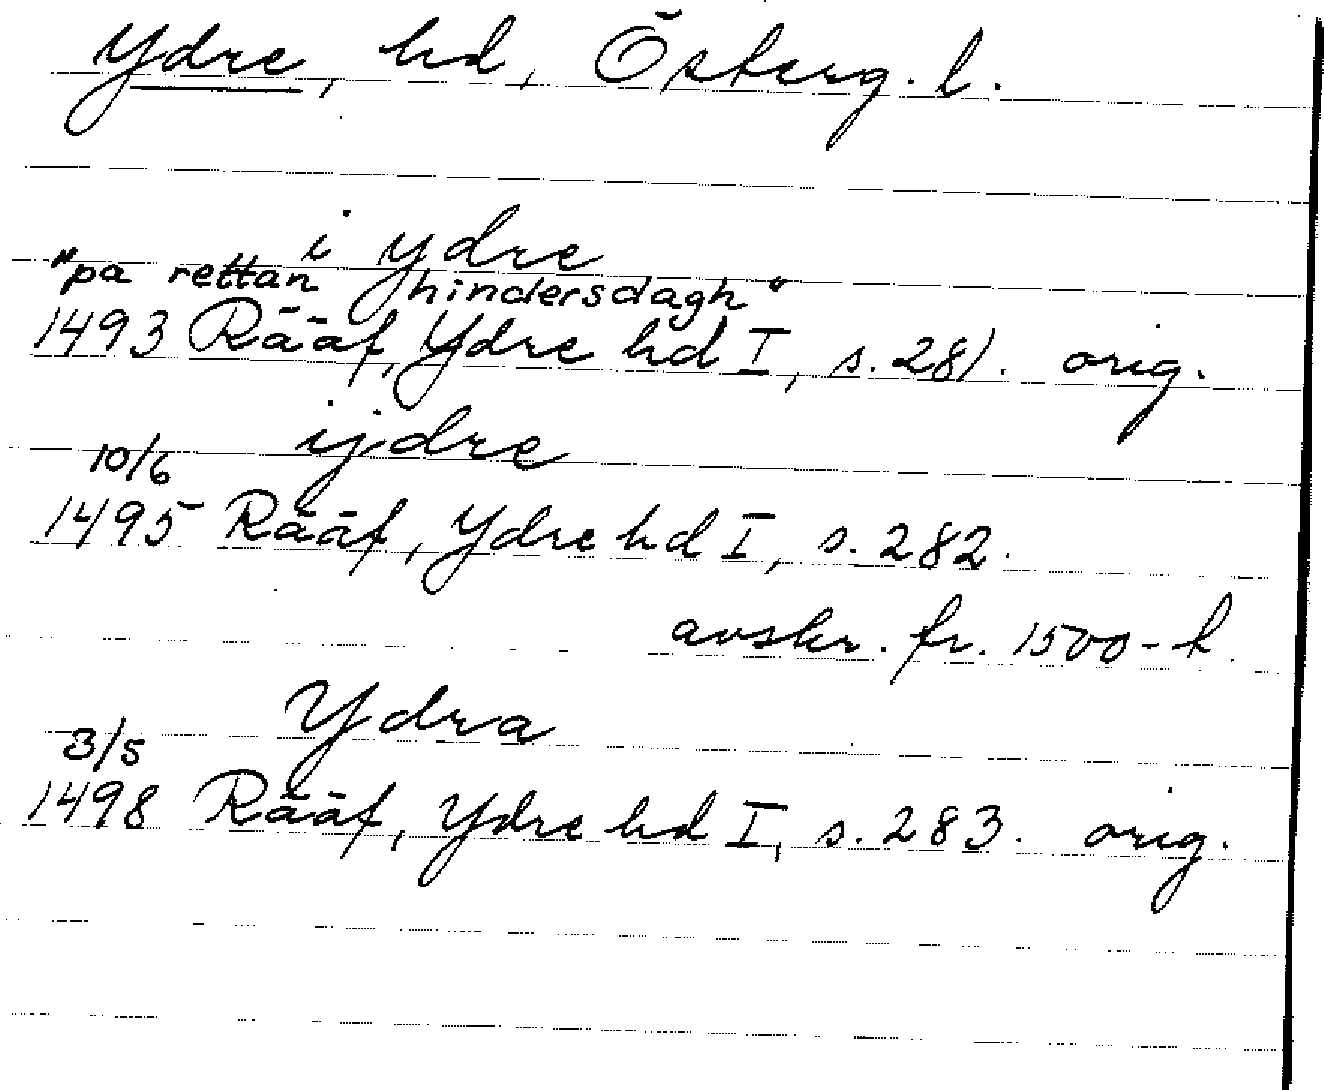 Ydre, hd, Österg. l.
i ydre
"pa rettan hindersdagh"
1493 Rääf, Ydre hd I, s. 281. orig.
ijdre
10/6
1495 Rääf, Ydre hd I, s. 282.
avskr. fr. 1500-t.
Ydra
3/5
1498 Rääf, Ydre hd I, s. 283. orig.